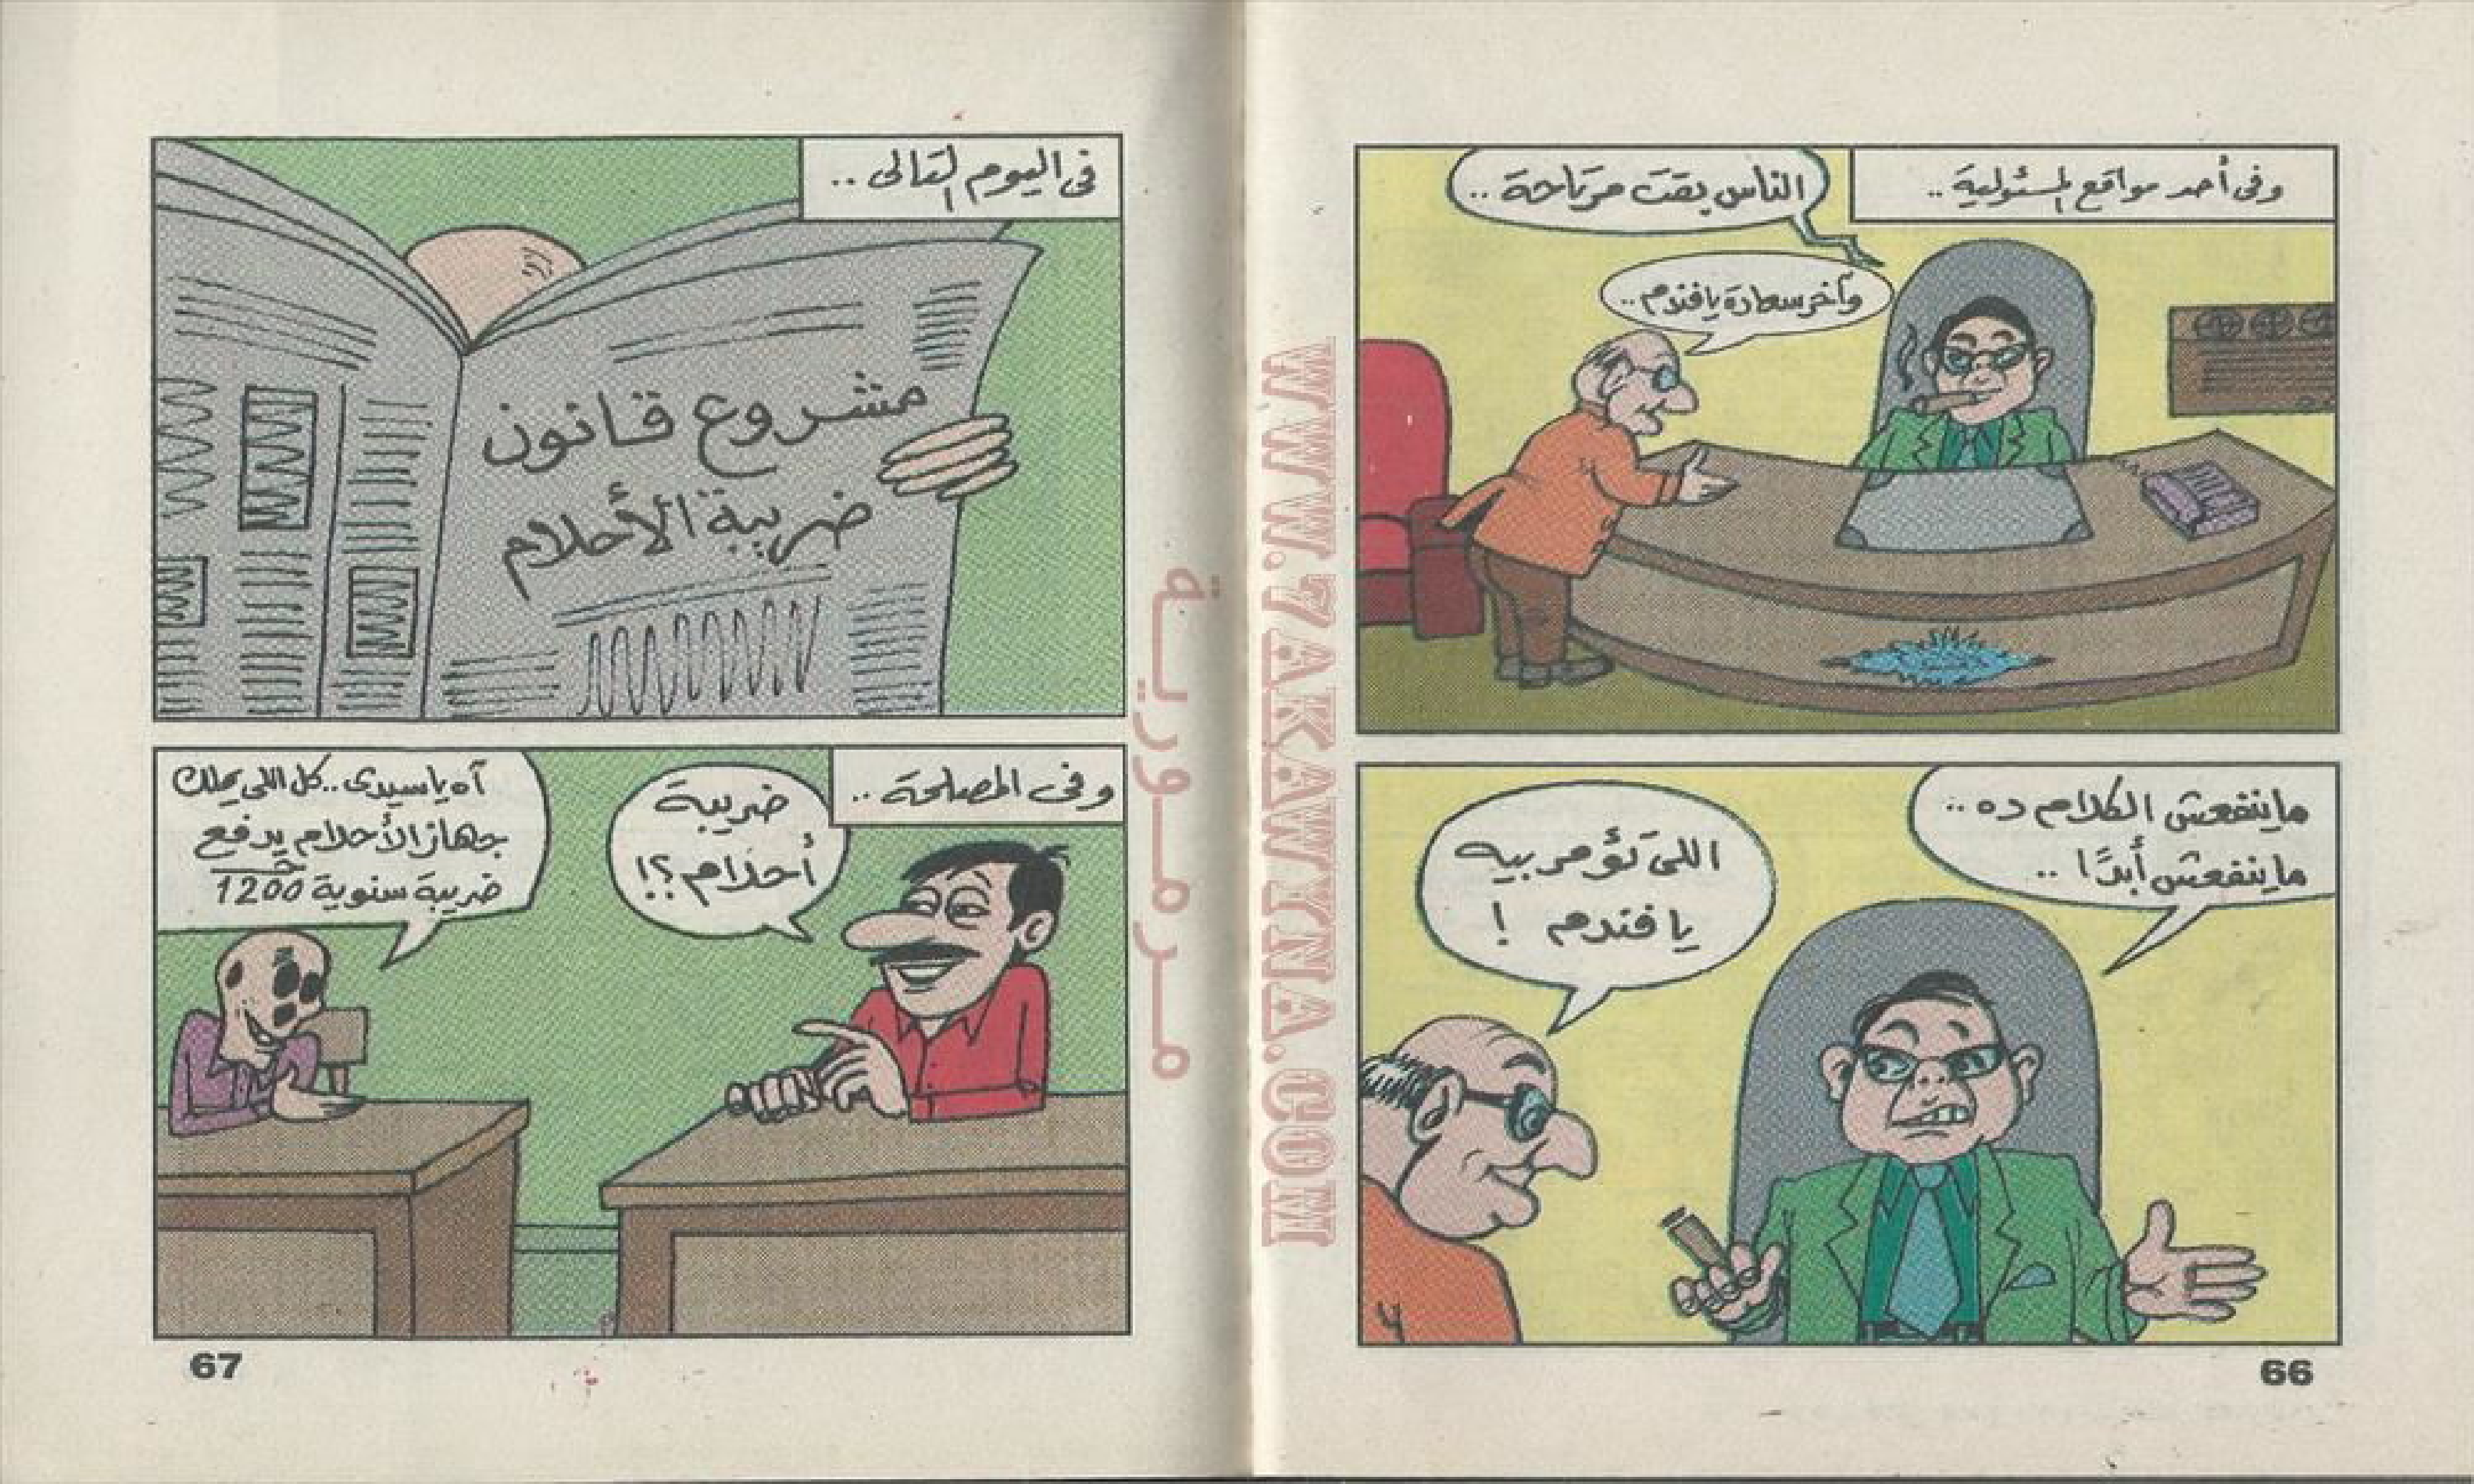 وفى أحد مواقع المسئولية ..
الناس بقت مرتاحة ..
وآخر سعادة يا فندم ..
ماينفعش الكلام ده ..
ماينفعش أبدًا ..
اللى تؤمر بيه
يا فندم !
66
فى اليوم التالى ..
مشروع قانون
ضريبة الأحلام
وفى المصلحة ..
ضريبة
أحلام ؟!
آه ياسيدى .. كل اللى يملك
جهاز الأحلام يدفع
ضريبة سنوية 1200 جـ
67
مرمورية
WWW.7AKAWYNA.COM